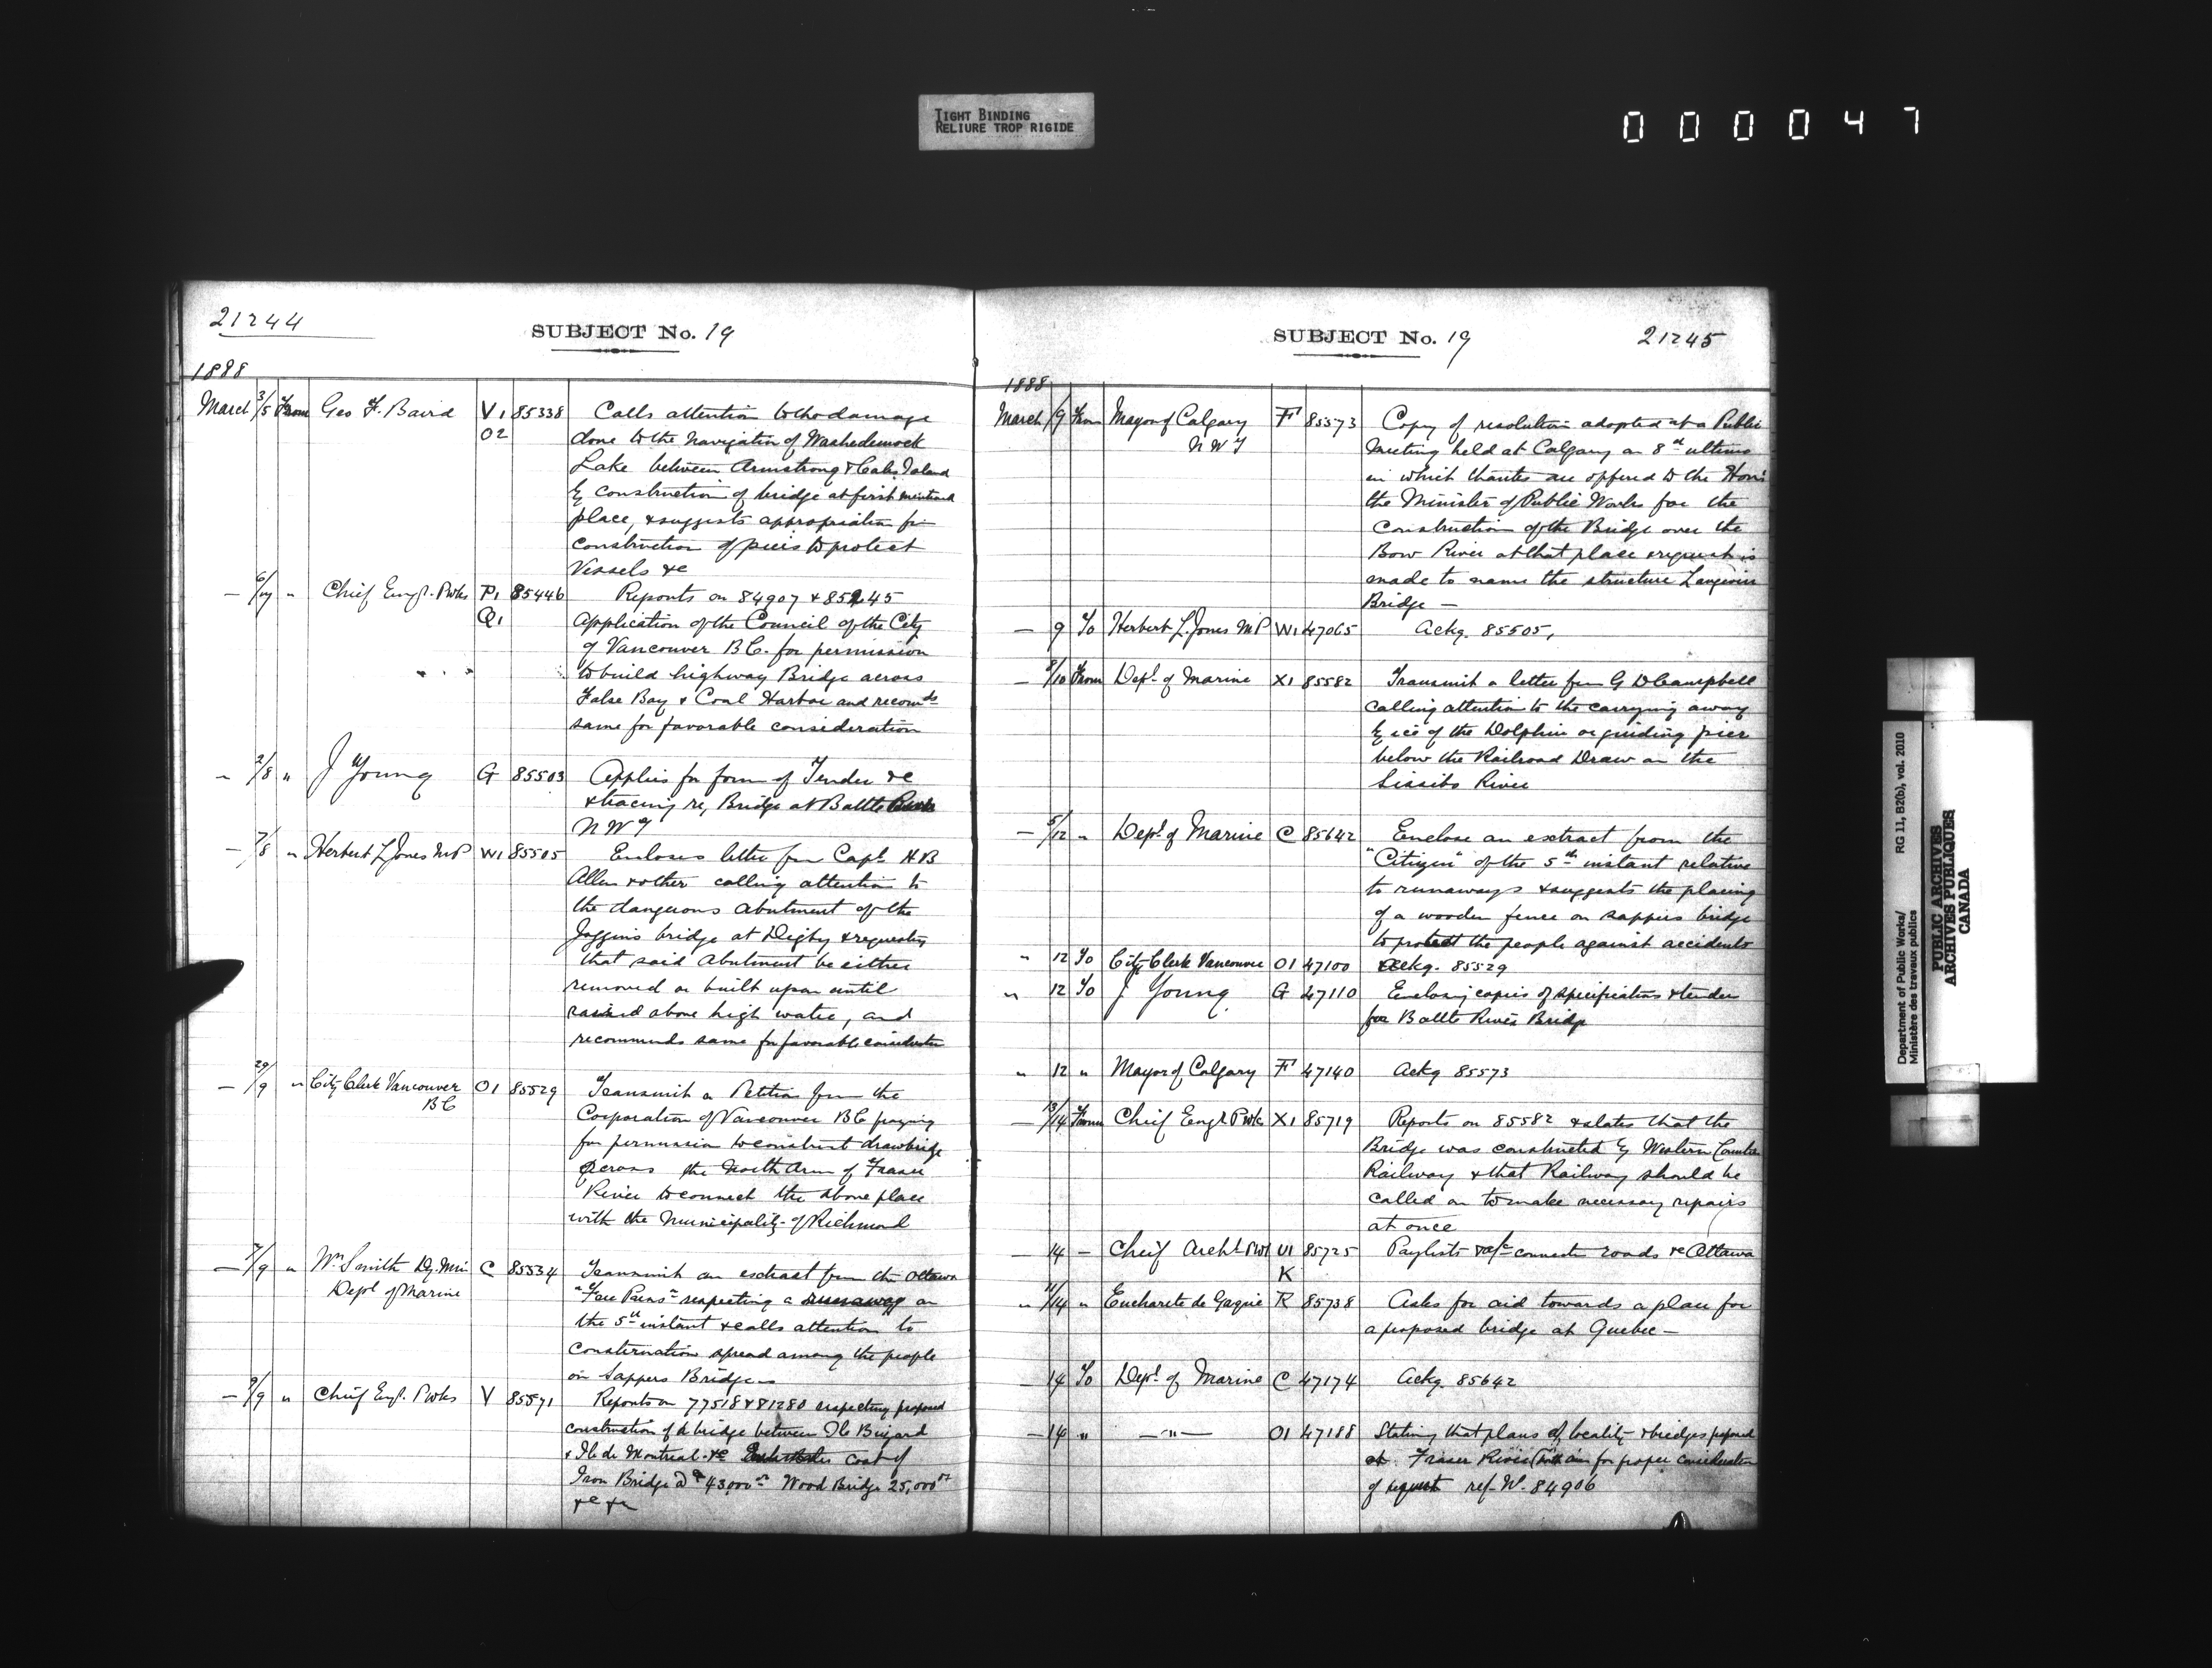 TIGHT BINDING
RELIURE TROP RIGIDE
000047
21244
SUBJECT No. 19
1888
March 3/5 From Geo F. Baird V1 85338 Calls attention to the damage
O2 done to the navigation of Washedemock
Lake between Armstrong & Cales Island
by construction of bridge at first mentioned
place, & suggests appropriation for
construction of piers to protect
Vessels &c
— 6/7 " Chief Engr. Pwks P1 85446 Reports on 84907 & 85245
Q1 Application of the Council of the City
of Vancouver B.C. for permission
to build highway Bridge across
False Bay & Coal Harbor and recomds
same for favorable consideration
" 2/8 " J Young G 85503 Applies for form of Tender &c
& tracing re, Bridge at Battle River
N W T
— 7/8 " Herbert L Jones M.P W1 85505 Encloses letter from Capt. H B
Allen & other calling attention to
the dangerous abutment of the
Joggins bridge at Digby & requesting
that said Abutment be either
removed or built upon until
raised above high water, and
recommends same for favorable consideration
— 29/9 " City Clerk Vancouver O1 85529 Transmit a Petition from the
B C Corporation of Vancouver B C praying
for permission to construct drawbridge
across the North Arm of Fraser
River to connect the above place
with the Municipality of Richmond
— 7/9 " Wm Smith Dy. Min C 85534 Transmit an extract from the Ottawa
Dept of Marine "Free Press" respecting a runaway on
the 5th instant & calls attention to
consternation spread among the people
on Sappers Bridge
— 9/9 " Chief Engr. Pwks V 85571 Reports on 77518 & 81280 respecting proposed
construction of a bridge between Ile Bizard
& Ile de Montreal &c cost of
Iron Bridge @ $43,000 00 Wood Bridge 25,000 00
&c &c
SUBJECT No. 19
21245
1888
March /9 From Mayor of Calgary F 85573 Copy of resolution adopted at a Public
N W T Meeting held at Calgary on 8th ultimo
in which thanks are offered to the Honl
the Minister of Public Works for the
Construction of the Bridge over the
Bow River at that place & request is
made to name the structure Langevin
Bridge —
— 9 To Herbert L. Jones M P W1 47065 Ackg. 85505,
— 8/10 From Dept. of Marine X1 85582 Transmit a letter from G D Campbell
calling attention to the carrying away
by ice of the Dolphin or guiding pier
below the Railroad Draw on the
Sissibo River
— 5/12 " Dept of Marine C 85642 Enclose an extract from the
"Citizen" of the 5th instant relative
to runaways & suggests the placing
of a wooden fence on sappers bridge
to protect the people against accidents
" 12 To City Clerk Vancouver O1 47100 Ackg. 85529
" 12 To J Young G 47110 Enclosing copies of specification & tender
for Battle River Bridge
" 12 " Mayor of Calgary F 47140 Ackg 85573
— 13/14 From Chief Engr Pwks X1 85719 Reports on 85582 & states that the
Bridge was constructed by Western Counties
Railway & that Railway should be
called on to make necessary repairs
at once
— 14 — Chief Archt Pwks U1 85725 Paylists & a/c connectn roads &c Ottawa
K
" 11/14 " Eucharete de Gagné R 85738 Asks for aid towards a plan for
a proposed bridge at Quebec —
— 14 To Dept. of Marine C 47174 Ackg. 85642
— 14 " — " — O1 47188 Stating that plans of locality & bridges proposed
at Fraser River for proper consideration
of request ref. W. 84906
Department of Public Works/ RG 11, B2(b), vol. 2010
Ministère des travaux publics
PUBLIC ARCHIVES
ARCHIVES PUBLIQUES
CANADA